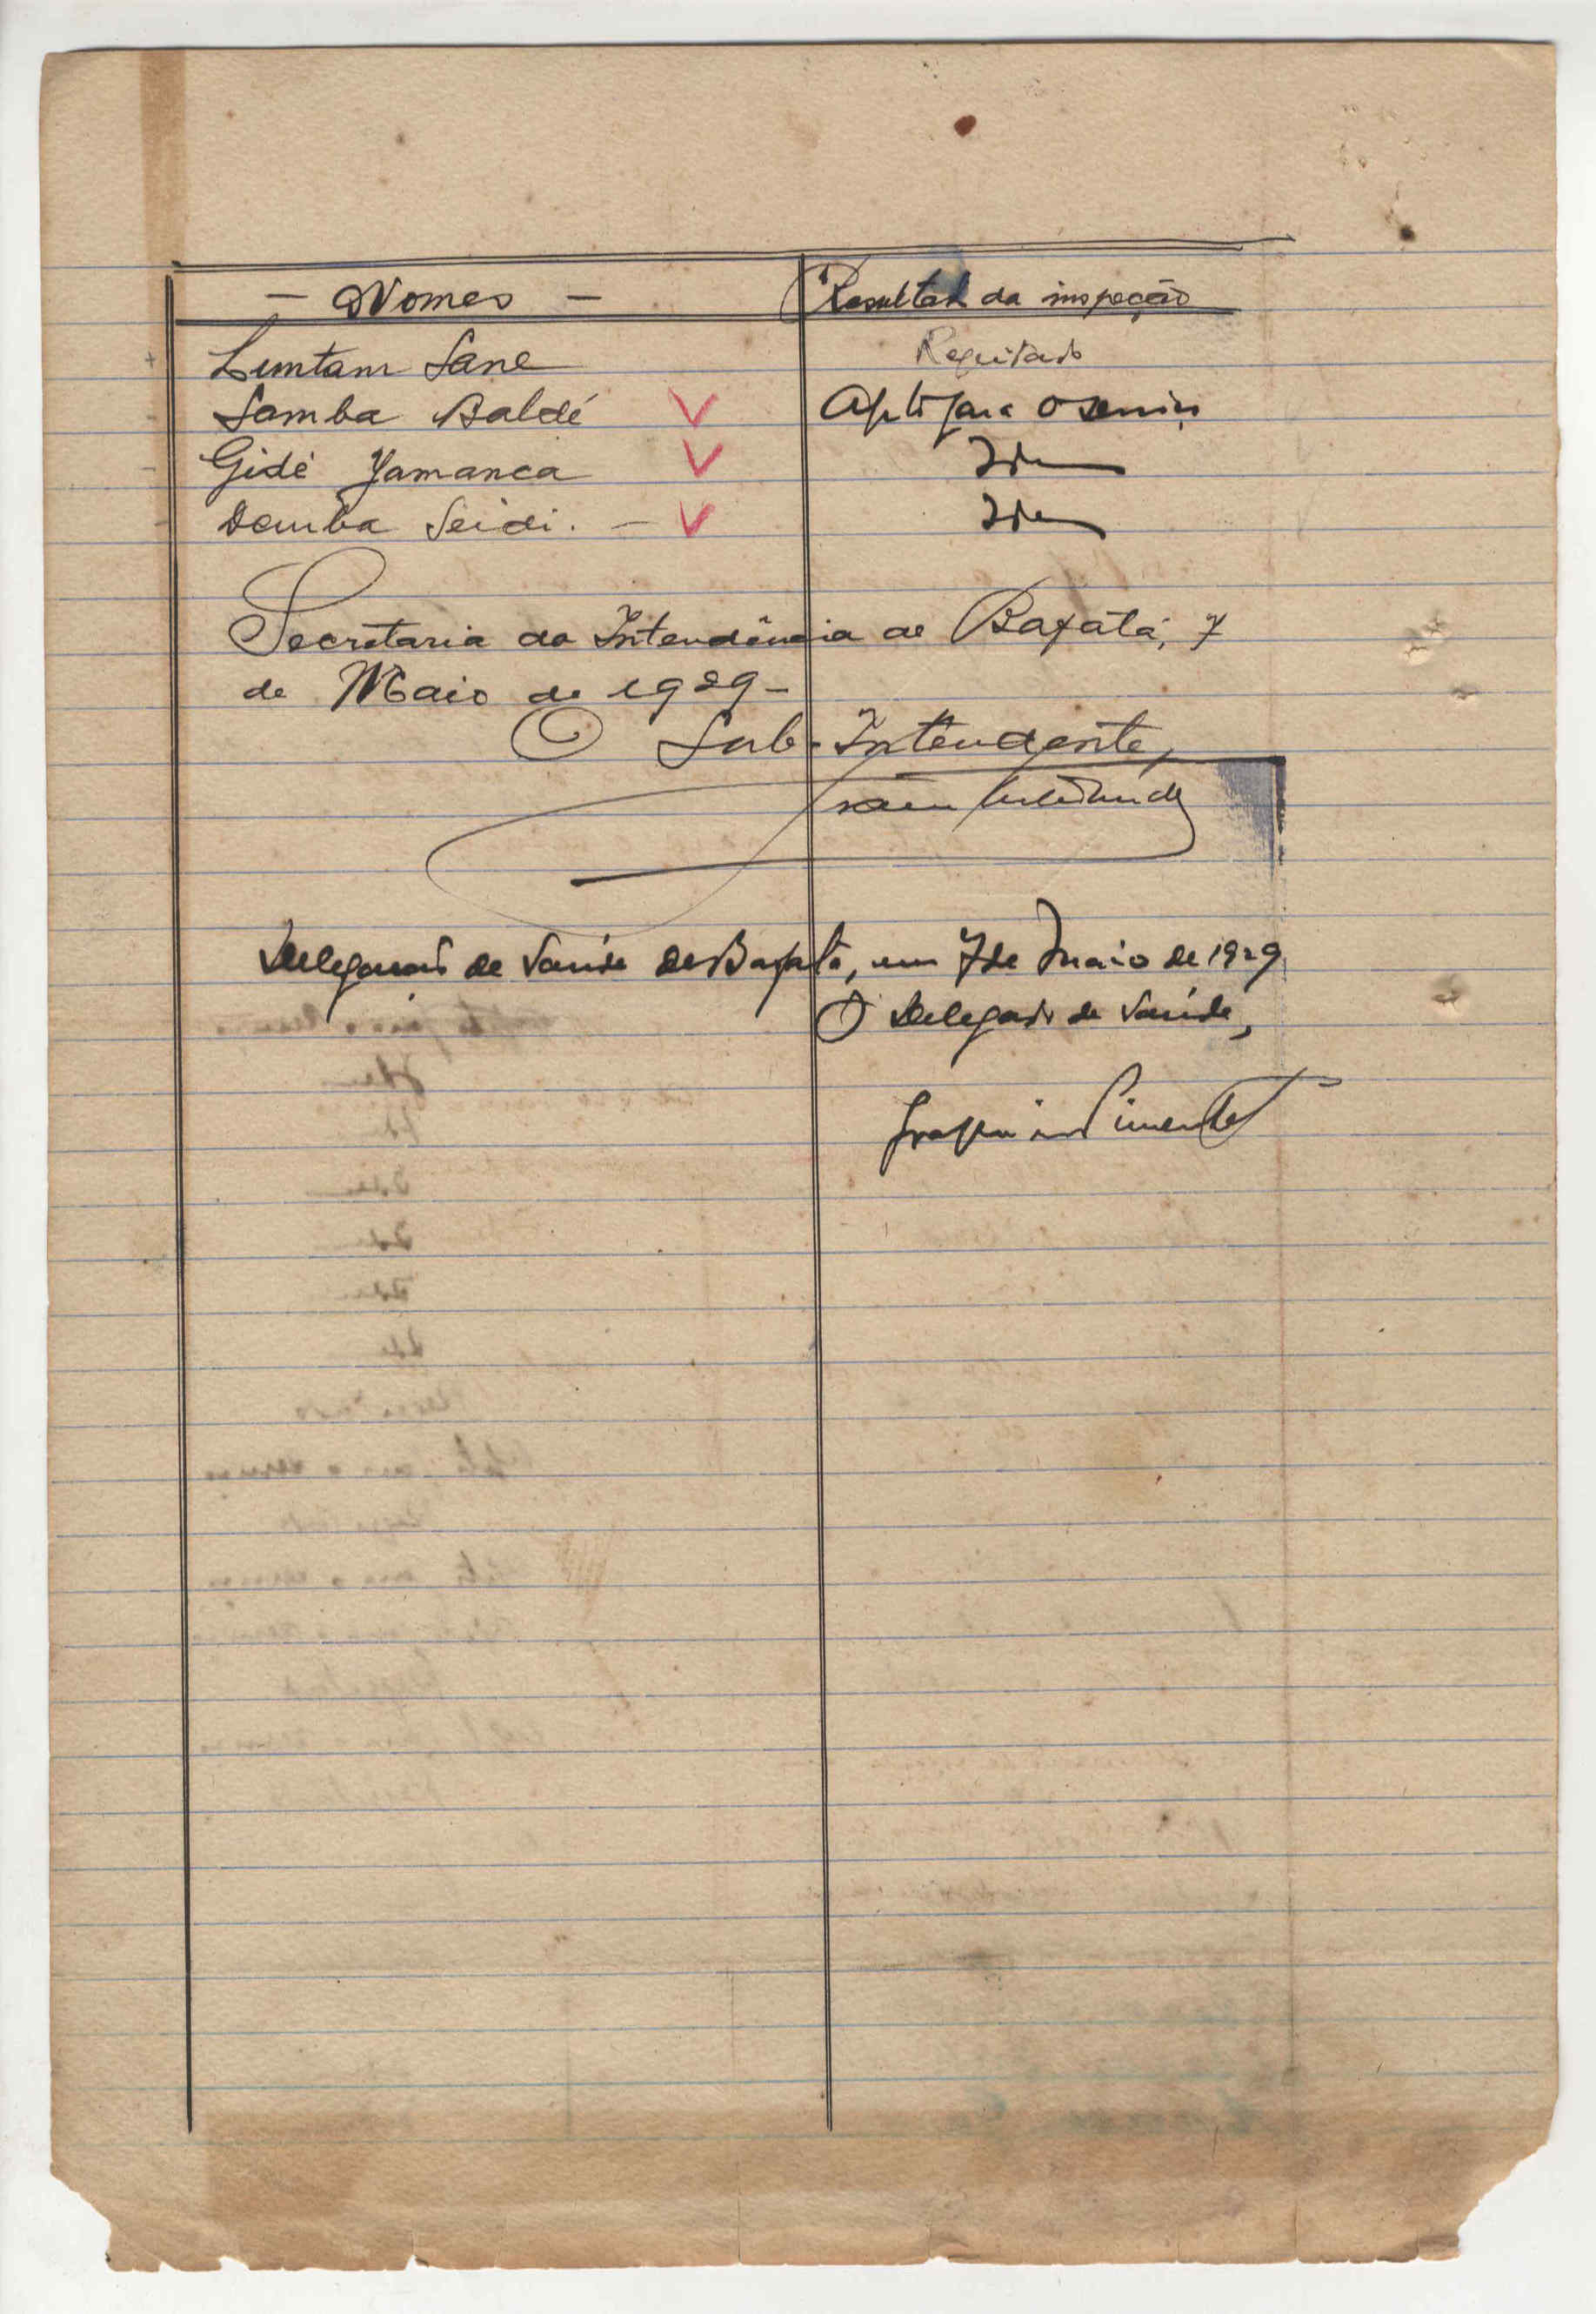 - Nomes - Resultado da inspeção
Luntam Sane Regeitado
Samba Baldé V Apto para o serviço
Gidé Jamanca V Idem
Demba Seidi. - V Idem
Secretaria da Intendência de Bafatá, 7
de Maio de 1929-
O Sub-Intendente,
Delegação de Saúde de Bafatá, em 7 de Maio de 1929
O Delegado de Saúde,
Pimentel